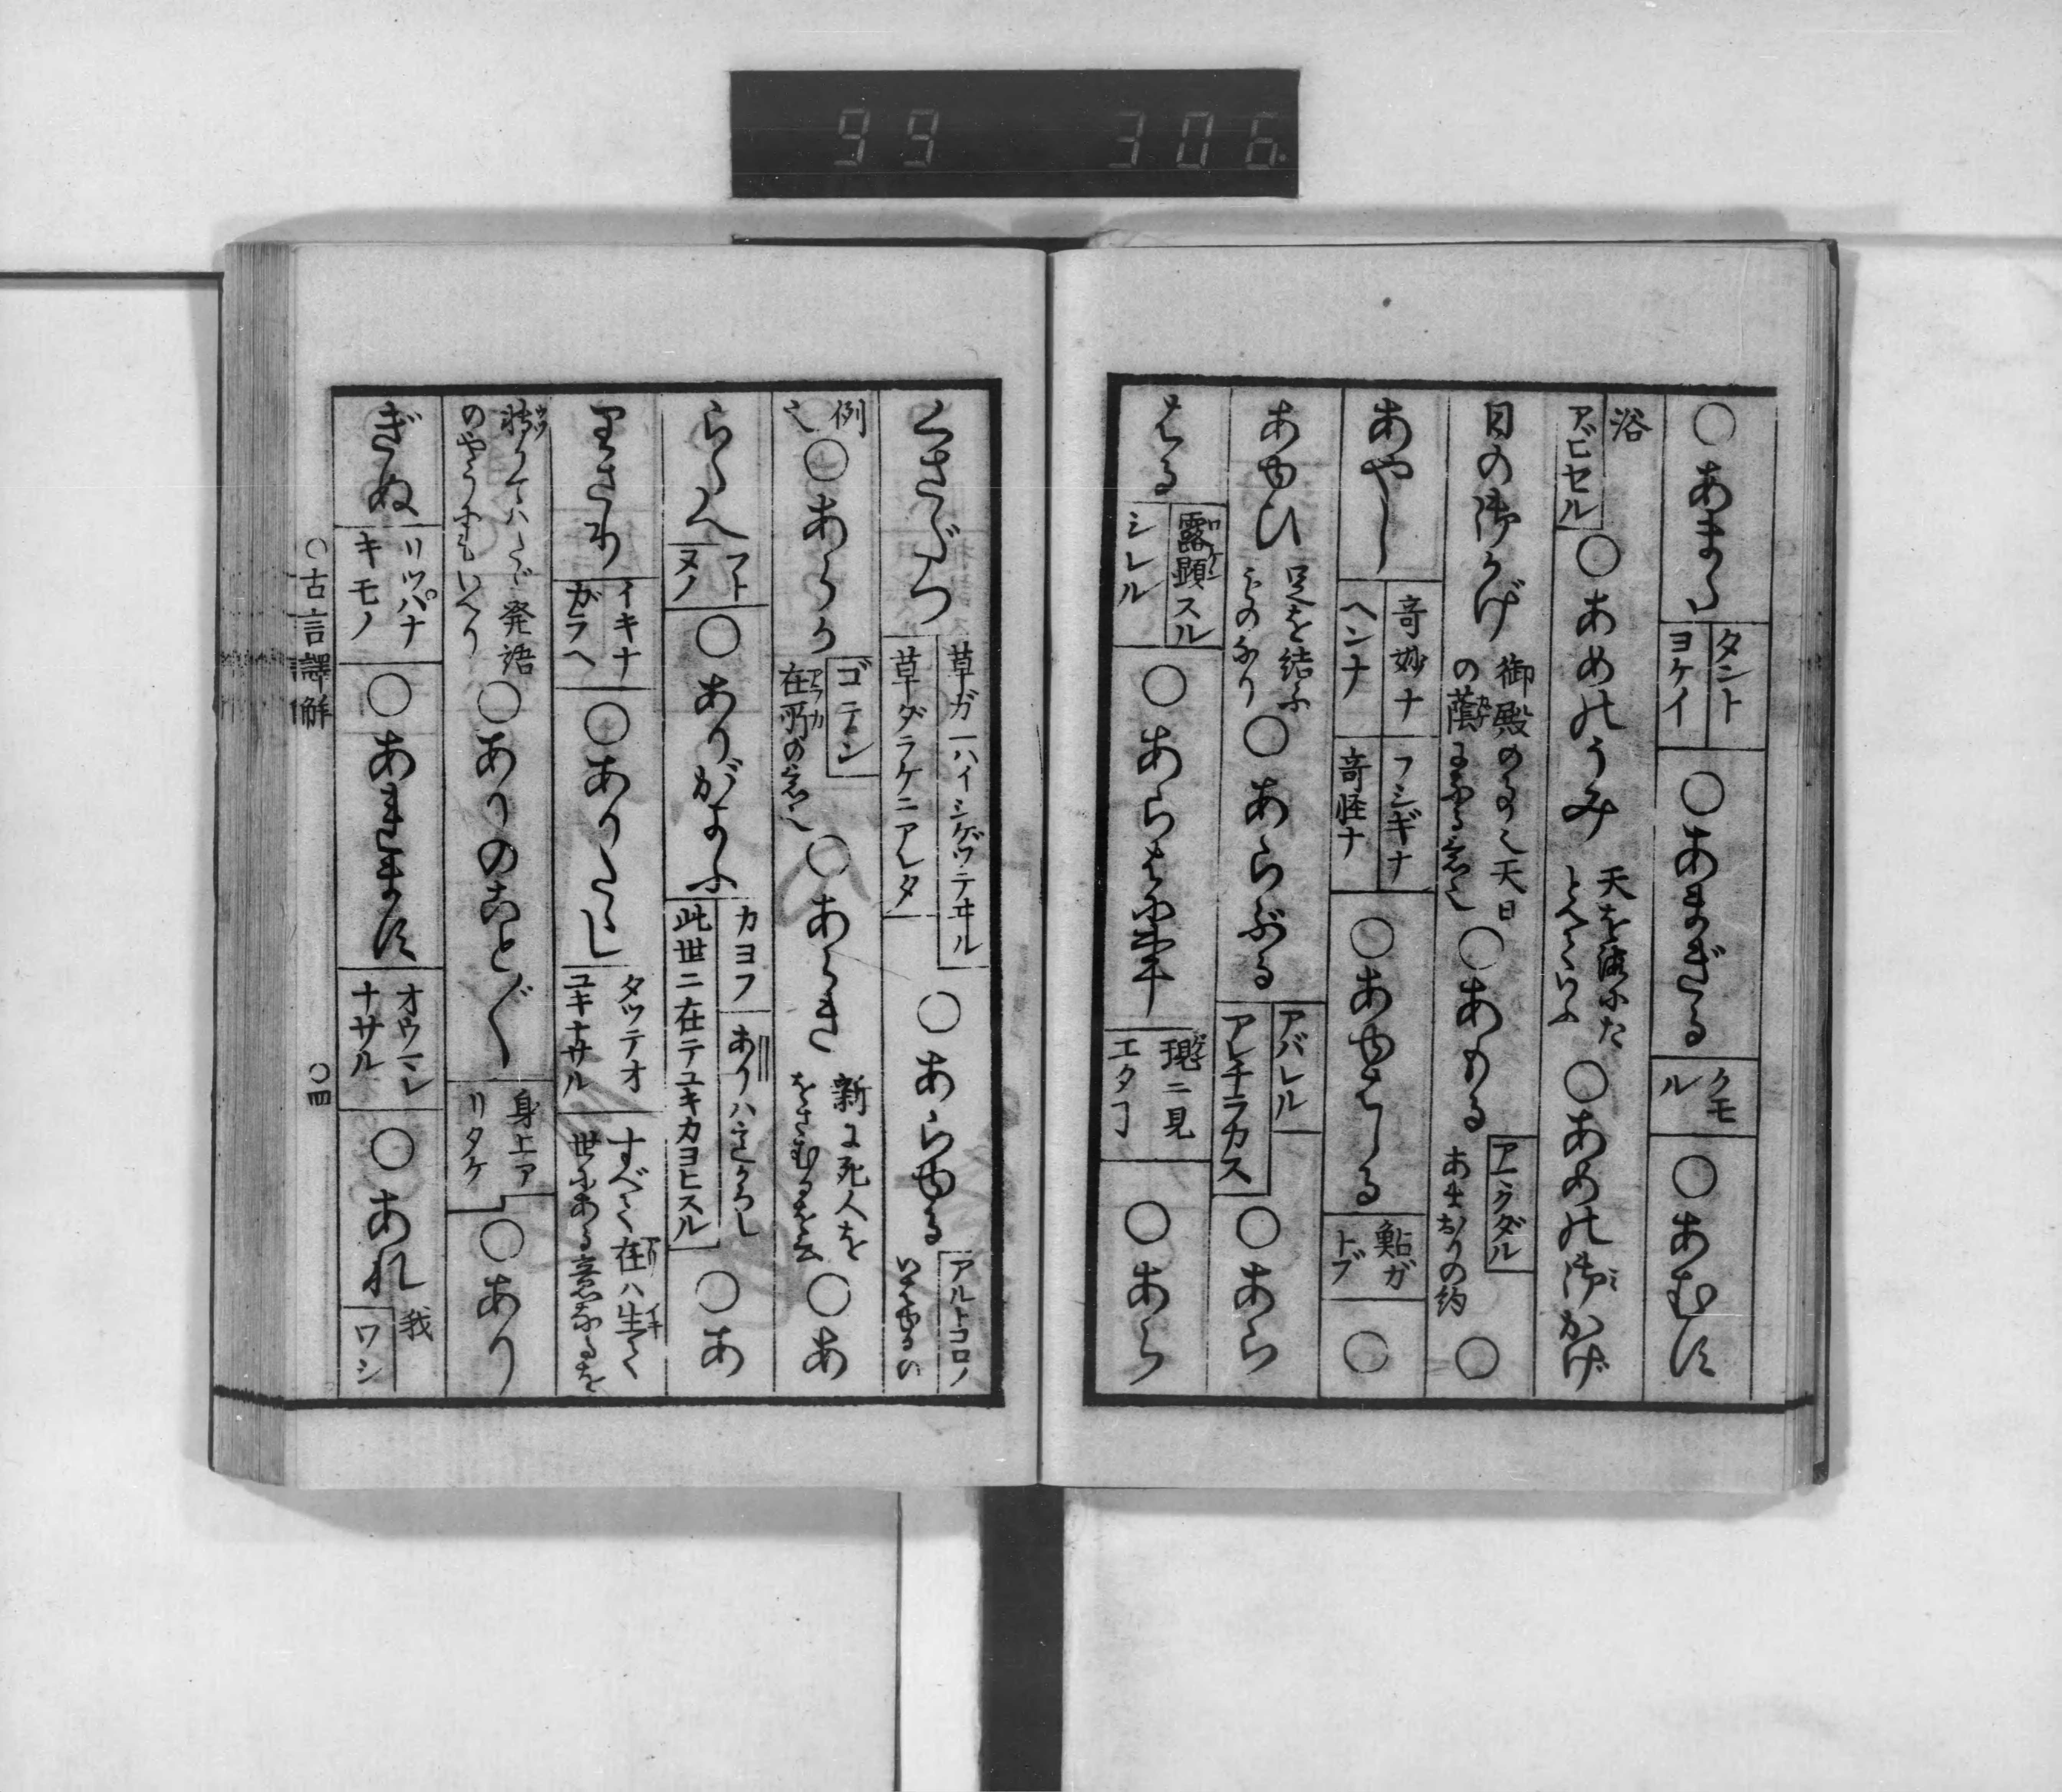 99 306
○あまた タント ヨケイ ○あまぎる クモル ○あむす
浴 アビセル ○あめのうみ 天を海にたとへていふ ○あめの御かげ
日の御かげ 御殿のことなり 天日の蔭になる意 ○あもる アマクダル あまおりの約 ○
あやし 奇妙ナ ヘンナ フシギナ 奇怪ナ ○あゆはしる 鮎ガトブ ○
あゆひ 足を結ふものなり ○あらぶる アバレル アレチラカス ○あら
はる 露顕スル シレル ○あらはに 現ニ見エタコ ○あら
くさだつ 草ガ一ハイシゲツテヰル 草ダラケニアレタ ○あらゆる アルトコロノ いはゆるの
例 ○あらか ゴテン 在所の意 ○あらき 新に死人ををさむるを云 ○あ
らたへ フトヌノ ○ありがよふ カヨフ 此世ニ在テユキカヨヒスル ありハ ○あ
りさり イキナガラヘ ○ありたゝし タツテオユキナサル すべて在ハ生て世にある意なるを
転りてハたゞ発語のやうにもいへり ○ありのことごと 身上アリタケ ○あり
ぎぬ リツパナキモノ ○あれます オウマレナサル ○あれ 我 ワシ
○古言譯解 ○四